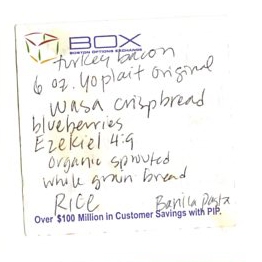 BOX
BOSTON OPTIONS EXCHANGE
turkey bacon
6 oz. yoplait original
wasa crispbread
blueberries
Ezekiel 4:9
organic sprouted
whole grain bread
RICE Barilla pasta
Over $100 Million in Customer Savings with PIP.